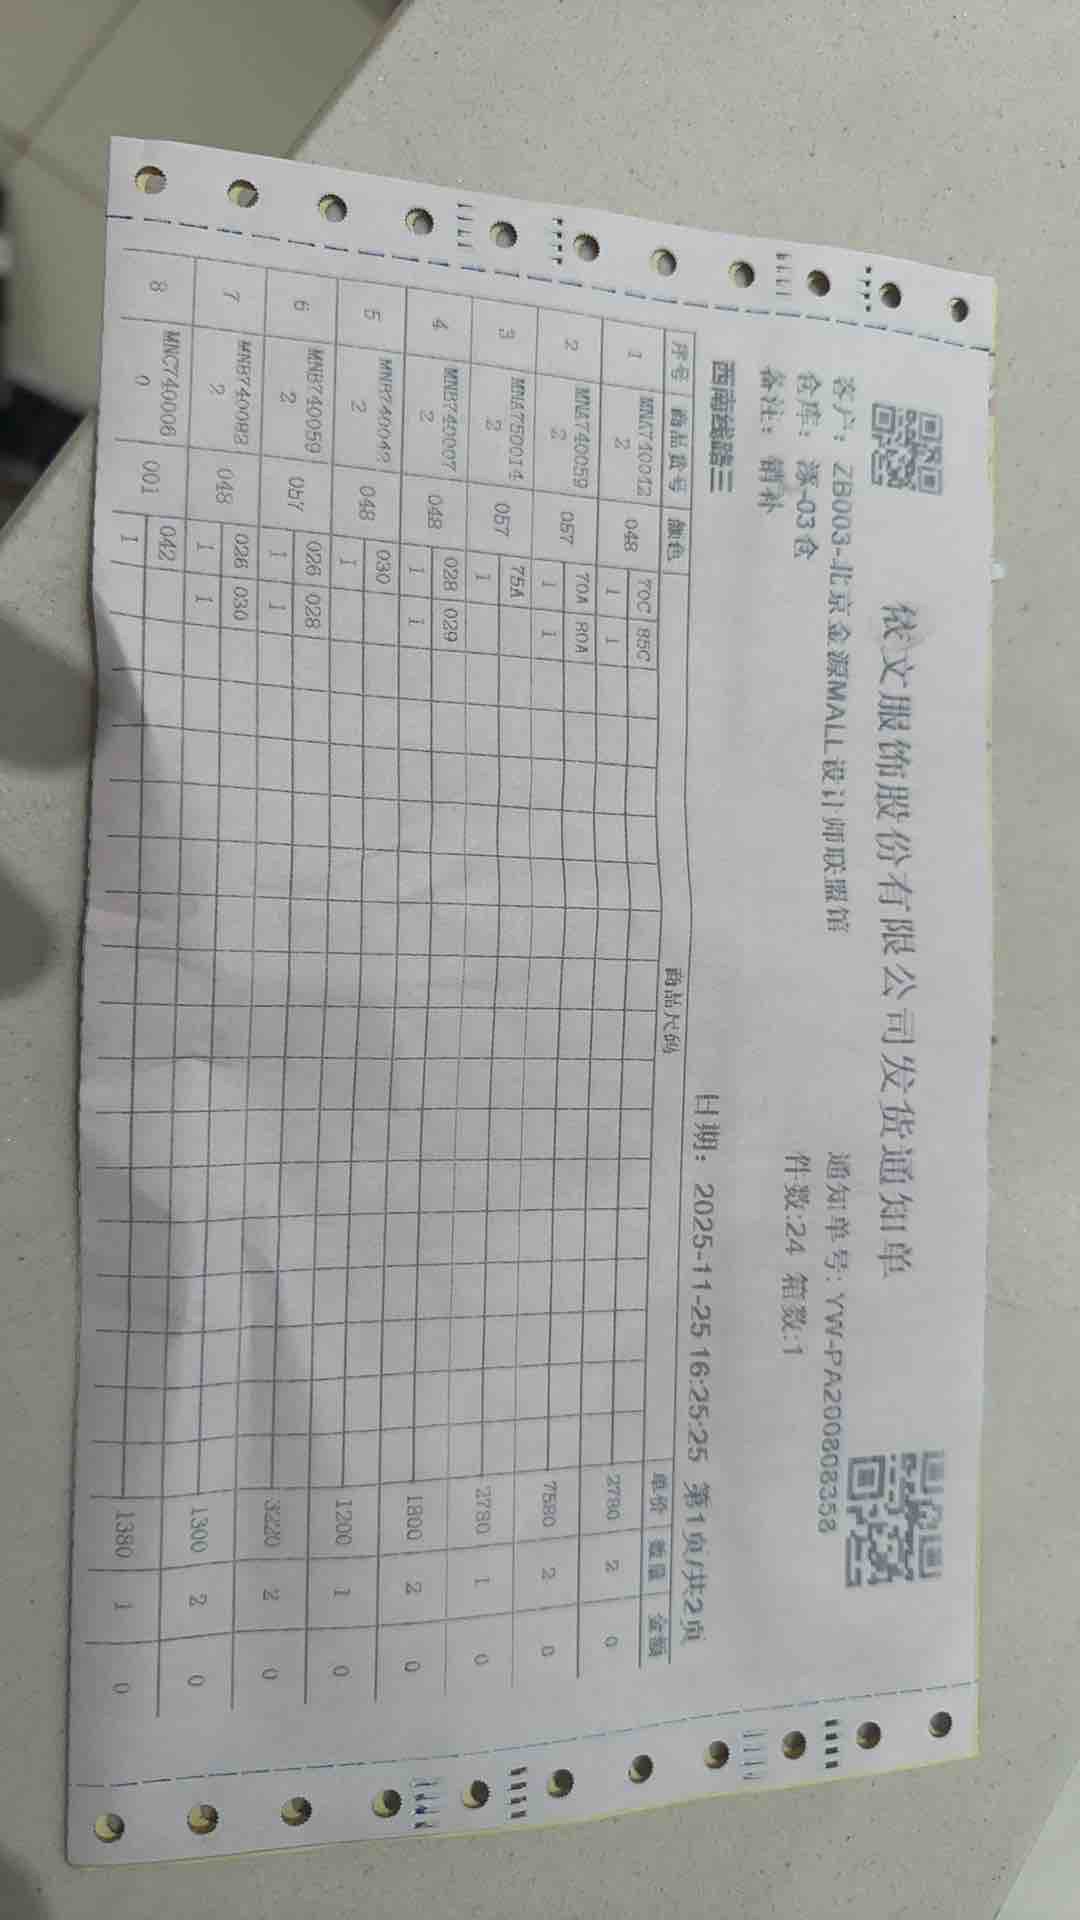 依文服饰股份有限公司发货通知单
客户：ZB003-北京金源MALL设计师联盟馆 通知单号:YW-PA200808358
仓库：涿-03仓 件数:24 箱数:1
备注：销补
西南线路三 日期：2025-11-25 16:25:25 第1页/共2页
序号 商品货号 颜色 商品尺码 单价 数量 金额
1 MNA7400422 048 70C 85C 2780 2 0
1 1
2 MNA7400592 057 70A 80A 7580 2 0
1 1
3 MNA7500142 057 75A 2780 1 0
1
4 MNB7400072 048 028 029 1800 2 0
1 1
5 MNB7400422 048 030 1200 1 0
1
6 MNB7400592 057 026 028 3220 2 0
1 1
7 MNB7400832 048 026 030 1300 2 0
1 1
8 MNC7400060 001 042 1380 1 0
1